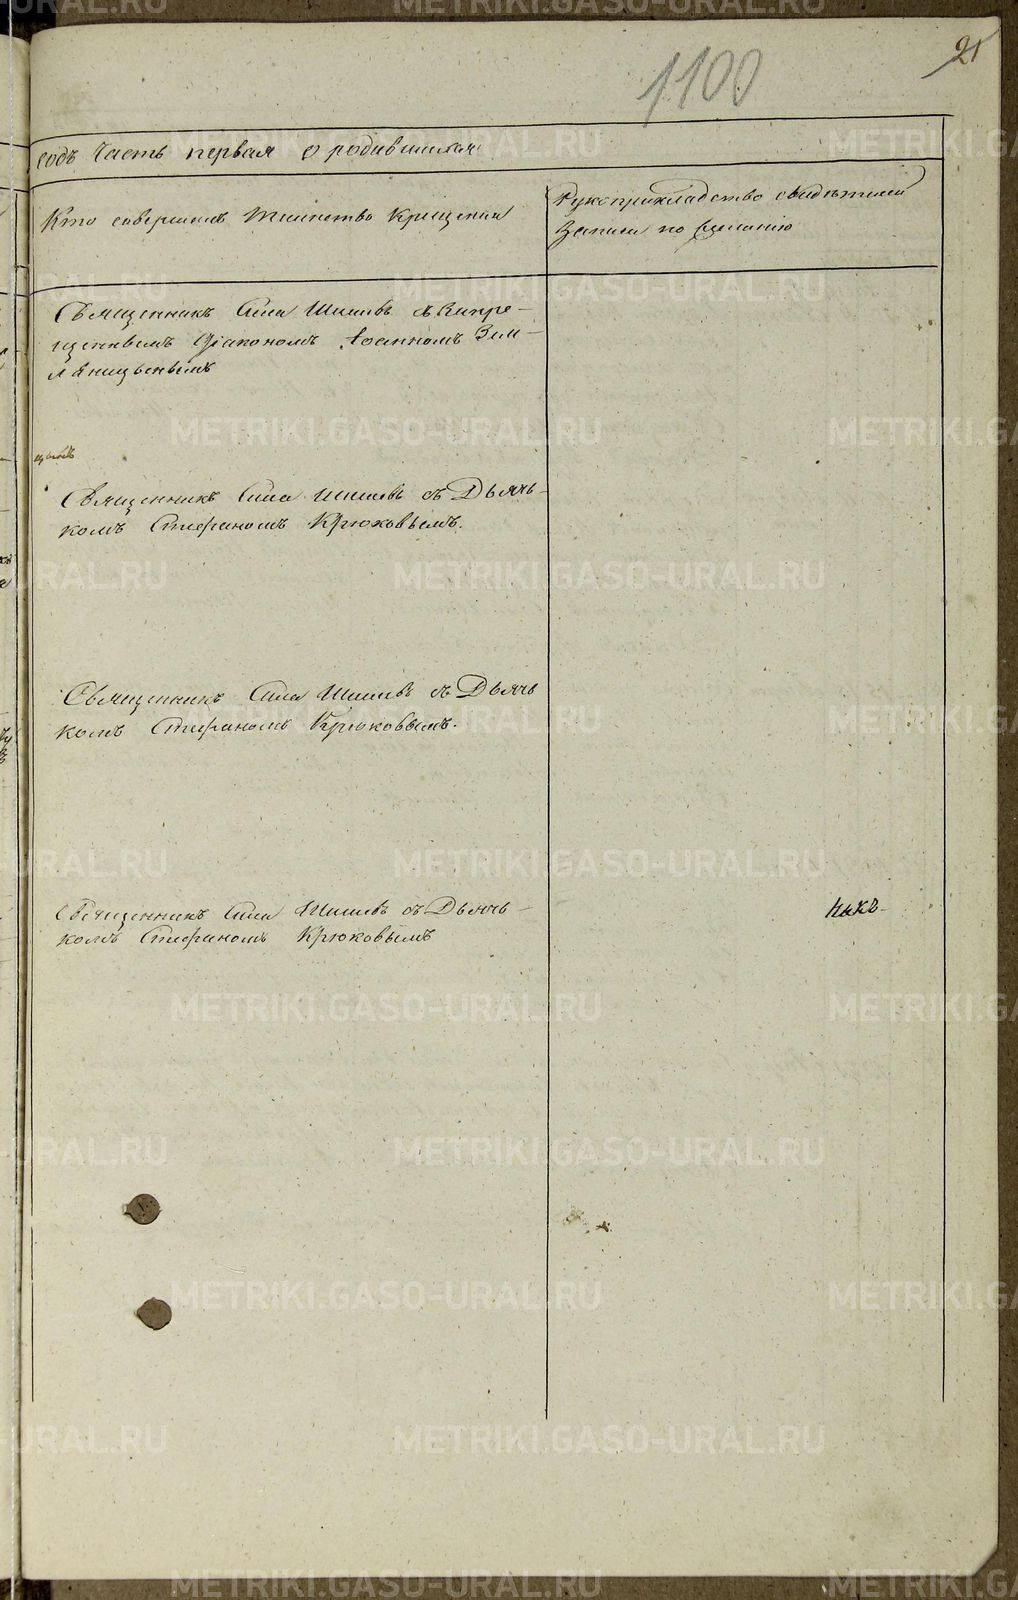 1100
21
годъ Часть первая о родившихся
Кто совершилъ Таинство Крещения
Рукоприкладство свидѣтелей
записи по желанію
Священникъ Сила Шишевъ съ Запре-
щеннымъ Діакономъ Іоанномъ Зем-
ляницынымъ
цынъ
Священникъ Сила Шишевъ съ Дьяч-
комъ Стефаномъ Крюковымъ.
Священникъ Сила Шишевъ съ Дьяч
комъ Стефаномъ Крюковымъ.
Священникъ Сила Шишевъ съ Дьяч-
комъ Стефаномъ Крюковымъ
METRIKI.GASO-URAL.RU